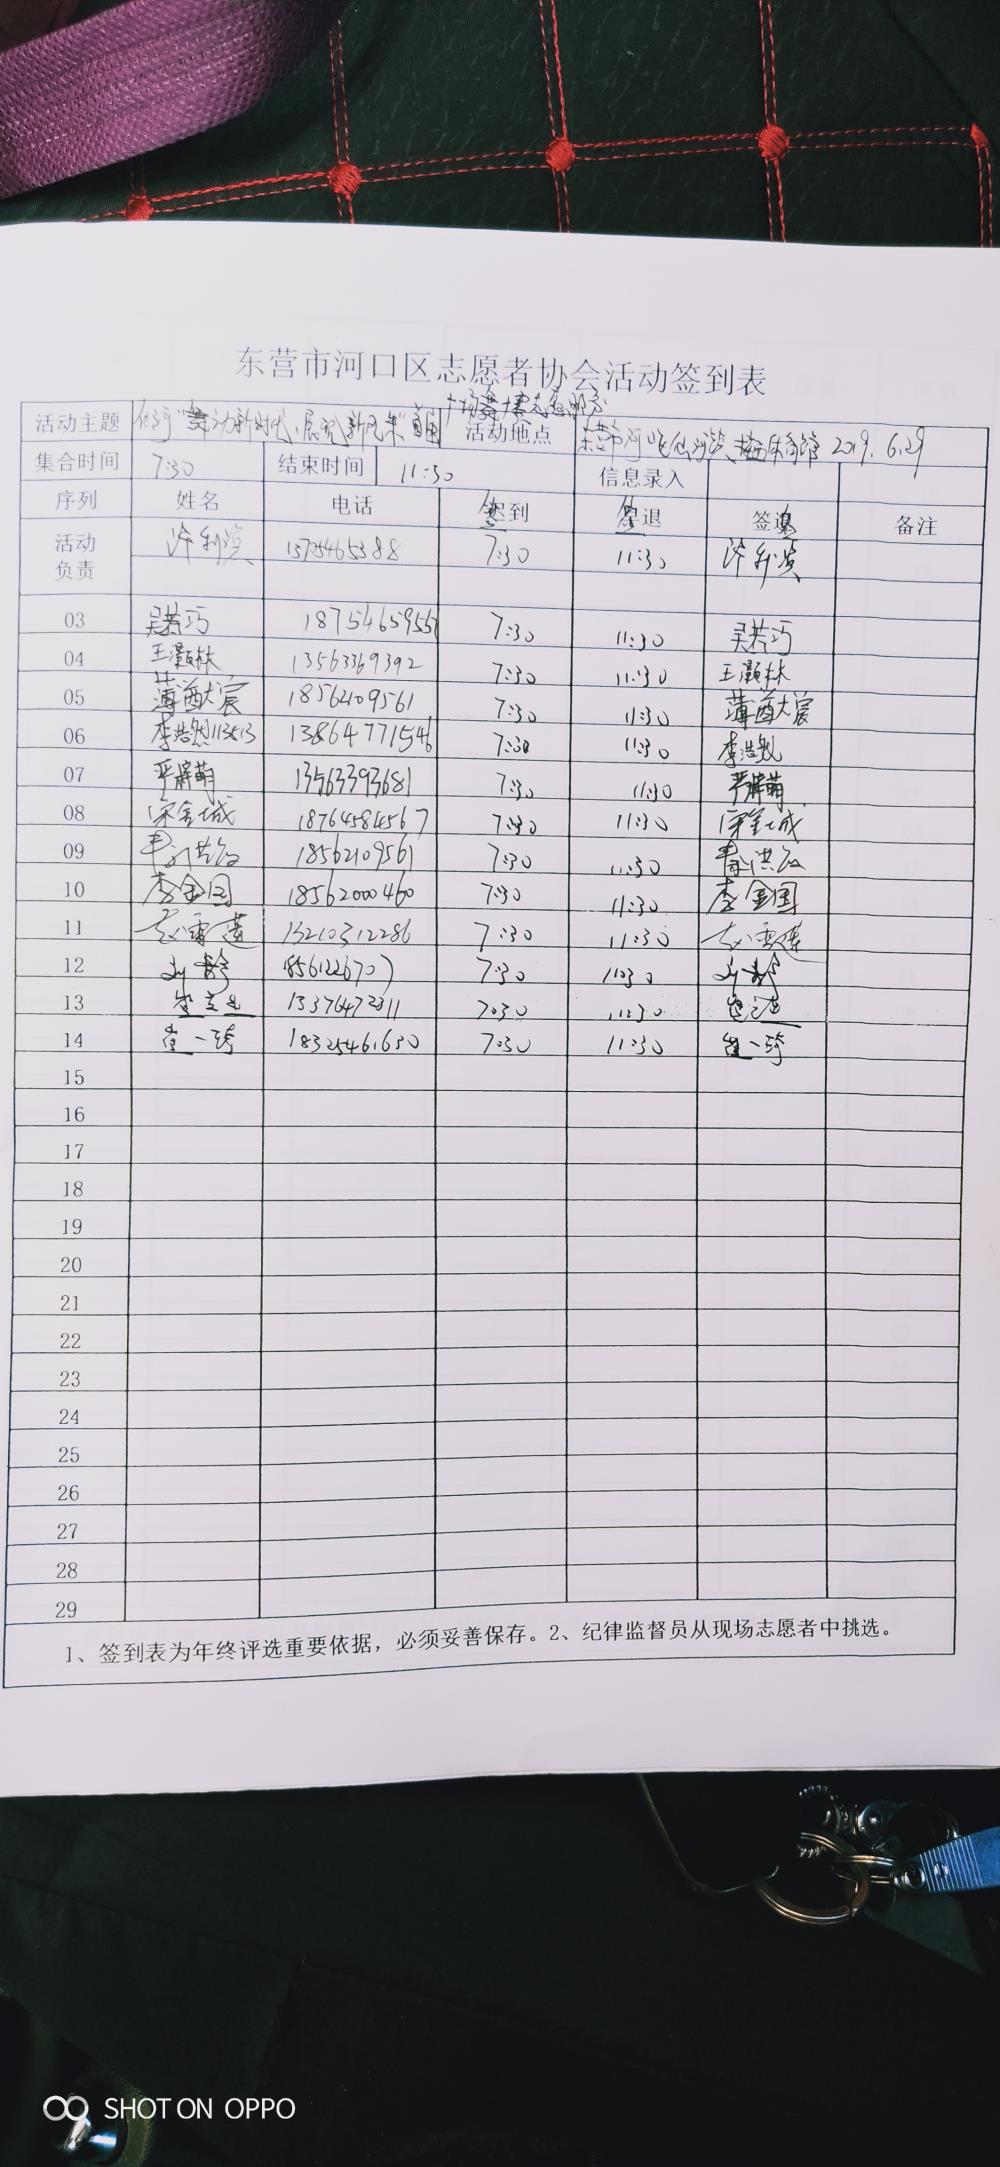 东营市河口区志愿者协会活动签到表
广场舞大赛志愿服务
活动主题 "舞动新时代·展现新风采" 活动地点 东营市河口 体育馆 2019.6.29
集合时间 7:30 结束时间 11:30 信息录入
序列 姓名 电话 签到 签退 签退 备注
活动负责 许利滨 13754665388 7:30 11:30 许利滨
03 吴若巧 18754659557 7:30 11:30 吴若巧
04 王灏林 13563369392 7:30 11:30 王灏林
05 薄酋大宸 18562109561 7:30 11:30 薄酋大宸
06 李浩然 13864771546 7:30 11:30 李浩然
07 严萌 13563393681 7:30 11:30 严萌
08 宋金城 18764584567 7:30 11:30 宋金城
09 18562109561 7:30 11:30
10 李金国 18562000460 7:30 11:30 李金国
11 赵雪莲 13210312286 7:30 11:30 赵雪莲
12 18561226707 7:30 11:30
13 13376472311 7:30 11:30
14 崔一琦 18325461630 7:30 11:30 崔一琦
15
16
17
18
19
20
21
22
23
24
25
26
27
28
29
1、签到表为年终评选重要依据，必须妥善保存。2、纪律监督员从现场志愿者中挑选。
SHOT ON OPPO